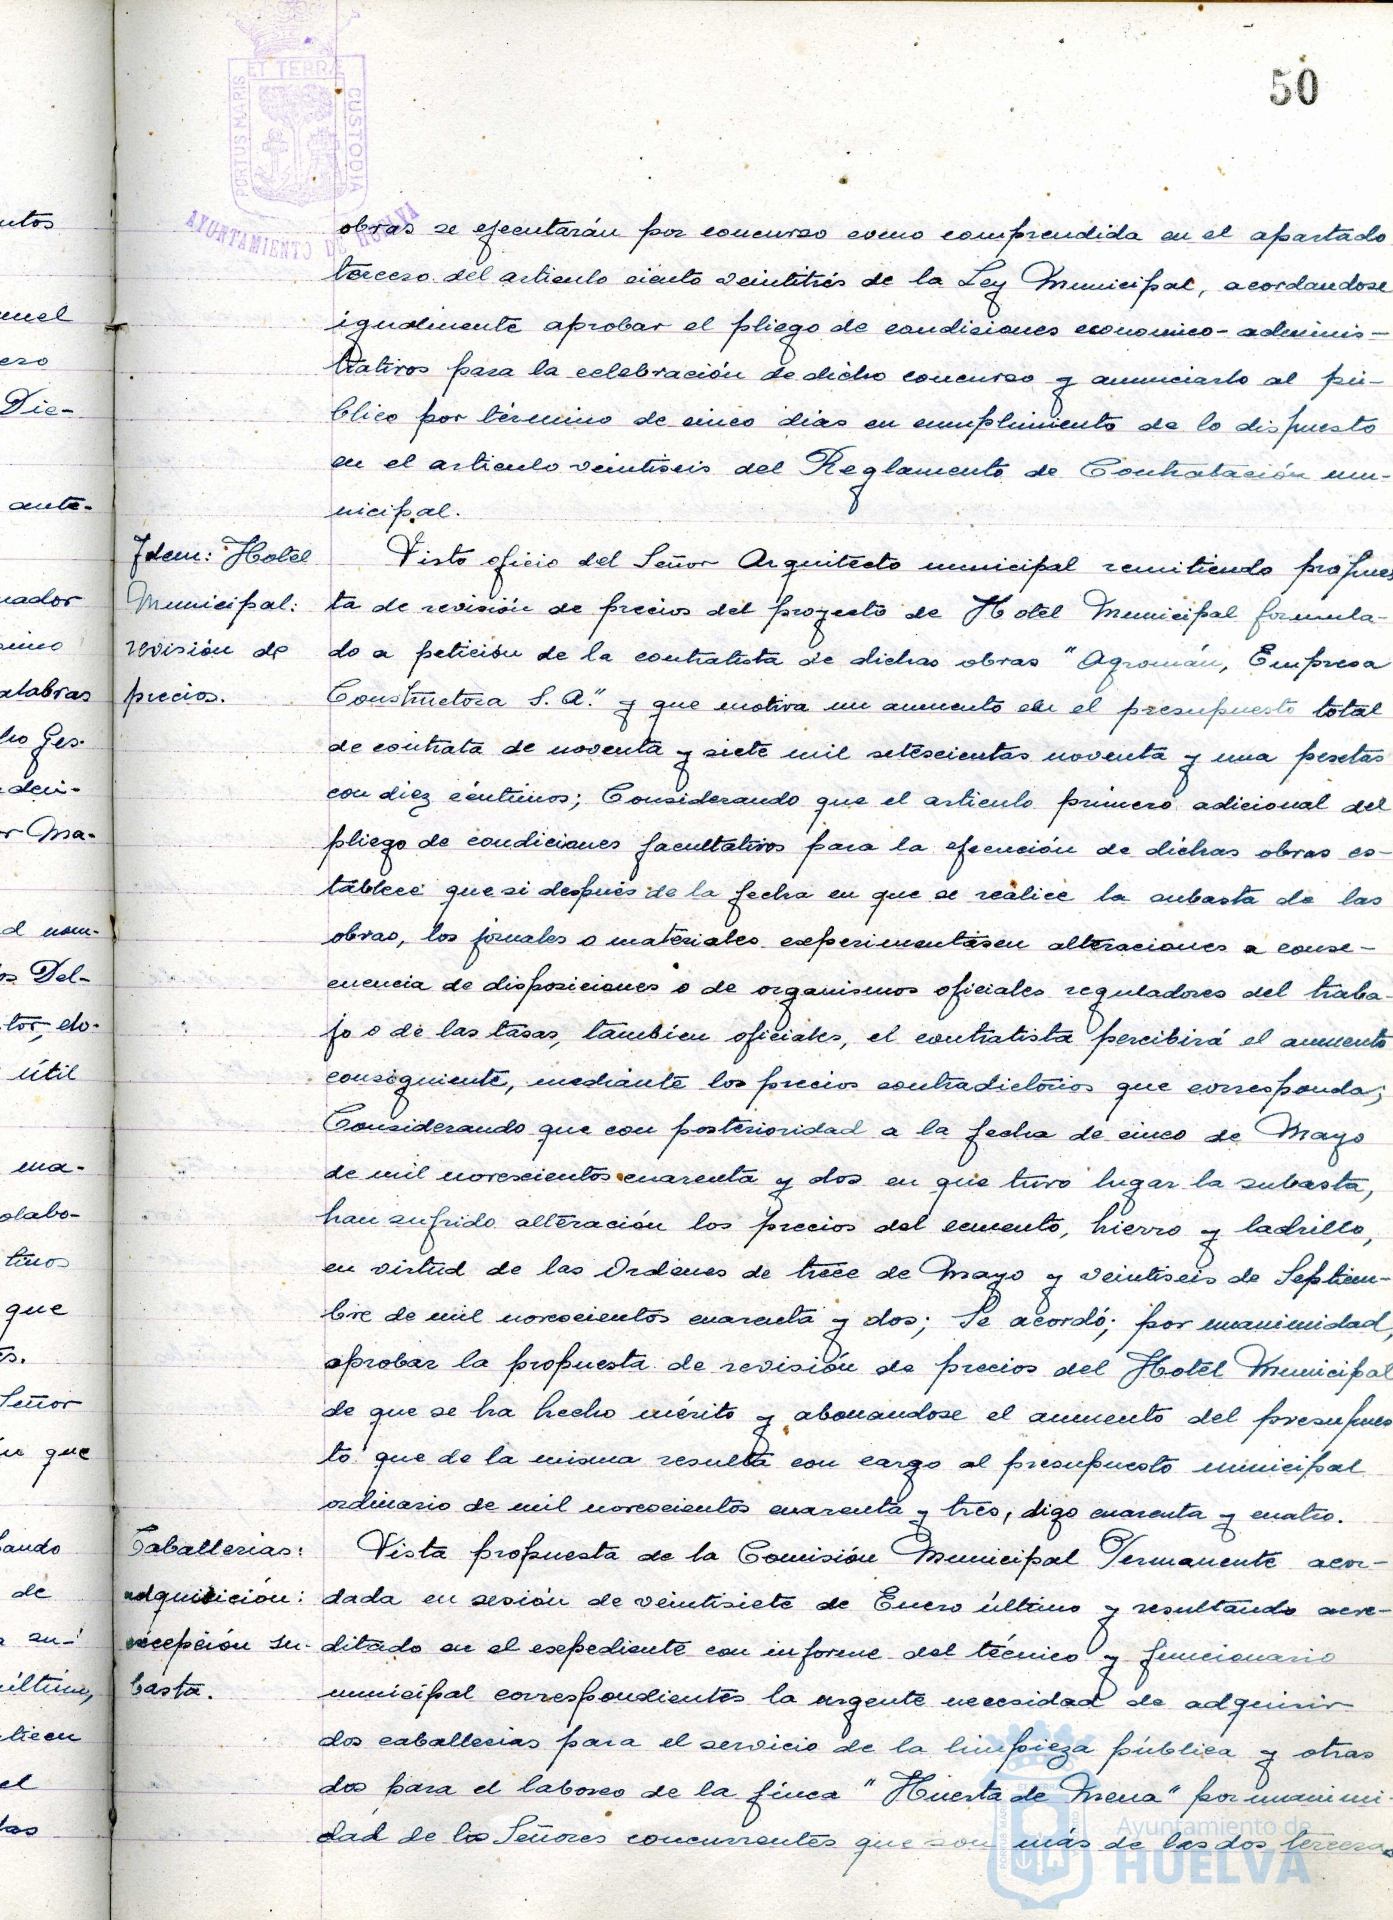 50
PORTUS MARIS
ET TERRÆ
CUSTODIA
AYUNTAMIENTO DE HUELVA
obras se ejecutarán por concurso como comprendida en el apartado
tercero del articulo ciento veintitrés de la Ley Municipal, acordandose
igualmente aprobar el pliego de condiciones economico-adminis-
trativos para la celebración de dicho concurso y anunciarlo al pú-
blico por término de cinco dias en cumplimiento de lo dispuesto
en el articulo veintiseis del Reglamento de Contratación mu-
nicipal.
Idem: Hotel
Municipal:
revisión de
precios.
Visto oficio del Señor Arquitecto municipal remitiendo propues
ta de revisión de precios del proyecto de Hotel Municipal formula-
do a petición de la contratista de dichas obras "Agromán, Empresa
Constructora S. A." y que motiva un aumento en el presupuesto total
de contrata de noventa y siete mil setescientas noventa y una pesetas
con diez céntimos; Considerando que el articulo primero adicional del
pliego de condiciones facultativos para la ejecución de dichas obras es-
tablece que si después de la fecha en que se realice la subasta de las
obras, los jornales o materiales experimentasen alteraciones a conse-
cuencia de disposiciones o de organismos oficiales reguladores del traba-
jo o de las tasas, tambien oficiales, el contratista percibirá el aumento
consiguiente, mediante los precios contradictorios que corresponda;
Considerando que con posterioridad a la fecha de cinco de Mayo
de mil novescientos cuarenta y dos en que tuvo lugar la subasta,
han sufrido alteración los precios del cemento, hierro y ladrillo,
en virtud de las Ordenes de trece de Mayo y veintiseis de Septiem-
bre de mil novecientos cuarenta y dos; Se acordó; por unanimidad,
aprobar la propuesta de revisión de precios del Hotel Municipal
de que se ha hecho mérito y abonandose el aumento del presupues
to que de la misma resulta con cargo al presupuesto municipal
ordinario de mil novecientos cuarenta y tres, digo cuarenta y cuatro.
Caballerias:
adquisición:
excepción su-
basta.
Vista propuesta de la Comisión Municipal Permanente acor-
dada en sesión de veintisiete de Enero último y resultando acre-
ditado en el expediente con informe del técnico y funcionario
municipal correspondientes la urgente necesidad de adquirir
dos caballerias para el servicio de la limpieza pública y otras
dos para el laboreo de la finca "Huerta de Mena" por unanimi-
dad de los Señores concurrentes que son más de las dos terceras
Ayuntamiento de
HUELVA